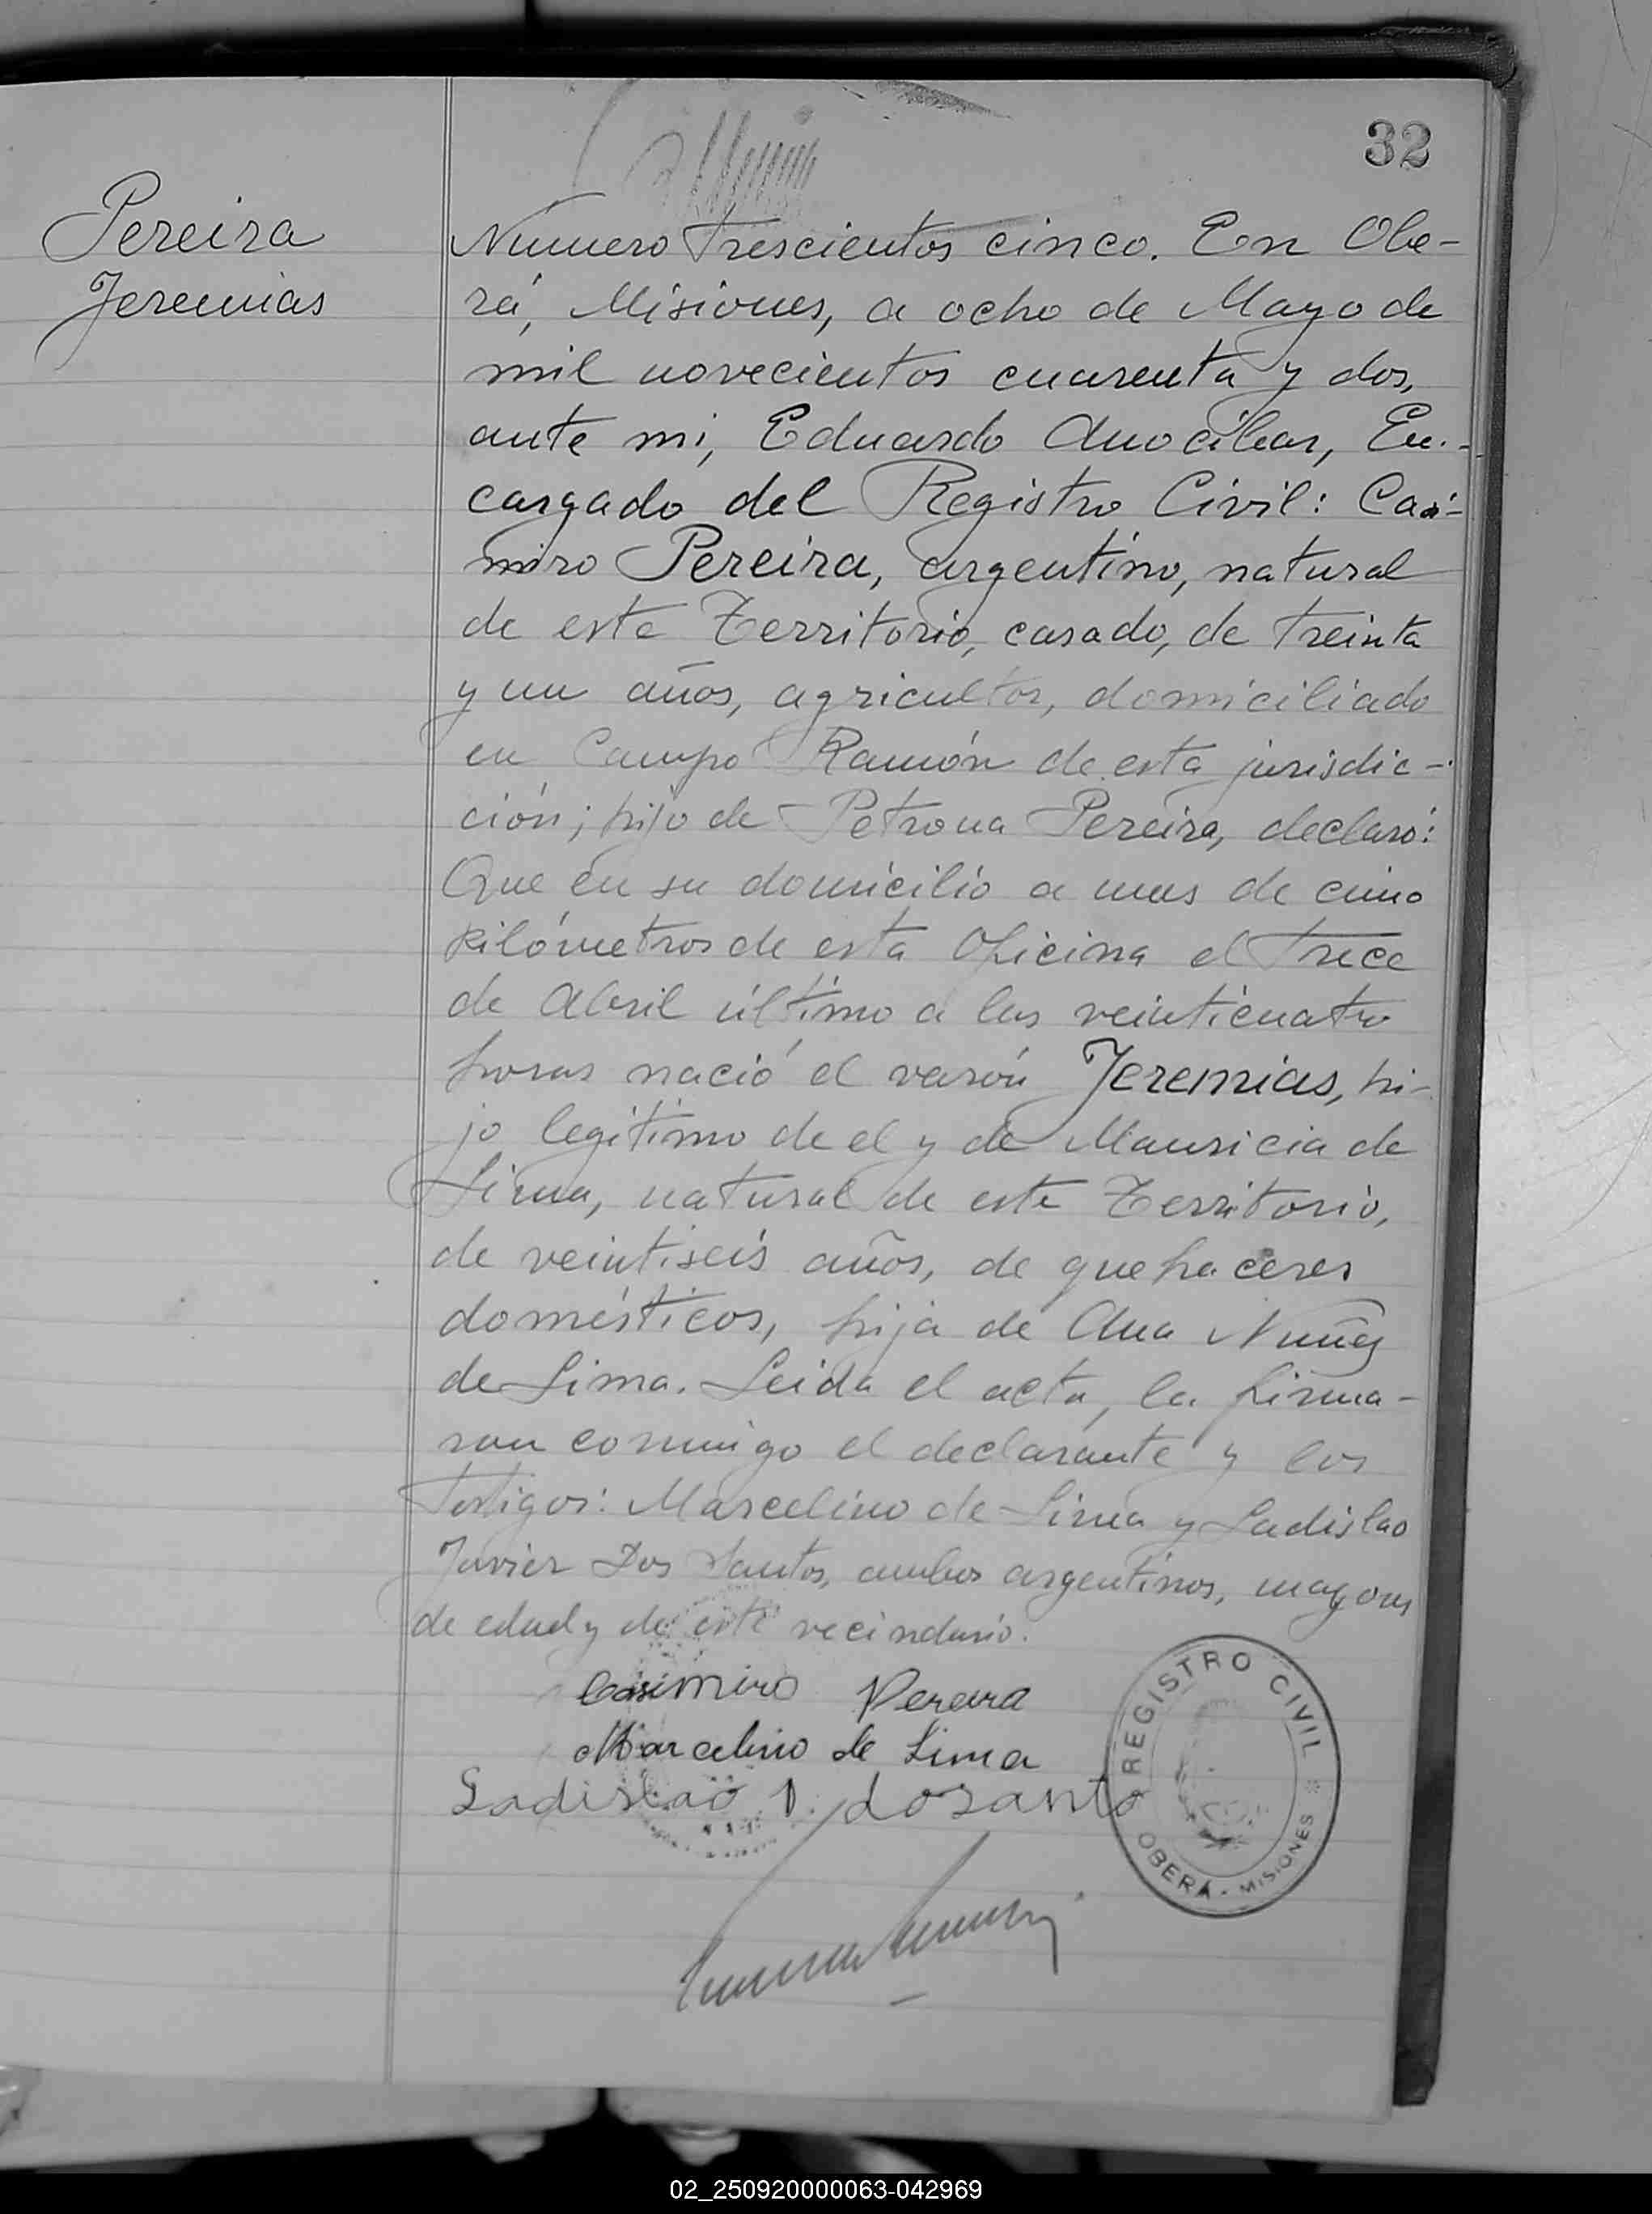 32
Pereira
Jeremias
Número Trescientos cinco. En Obe-
rá, Misiones, a ocho de Mayo de
mil novecientos cuarenta y dos,
ante mi, Eduardo Anocibar, En-
cargado del Registro Civil: Casi-
miro Pereira, argentino, natural
de este Territorio, casado, de treinta
y un años, agricultor, domiciliado
en Campo Ramón de esta jurisdic-
ción; hijo de Petrona Pereira, declaró:
Que en su domicilio a mas de cinco
kilómetros de esta Oficina el trece
de Abril último a las veinticuatro
horas nació el varón Jeremias, hi-
jo legítimo de el y de Mauricia de
Lima, natural de este Territorio,
de veintiseis años, de quehaceres
domésticos, hija de Ana Nuñez
de Lima. Leida el acta, la firma-
ron conmigo el declarante y los
testigos: Marcelino de Lima y Ladislao
Javier Dos Santos, ambos argentinos, mayores
de edad y de este vecindario.
Casimiro Pereira
Marcelino de Lima
Ladislao J. dosanto
REGISTRO CIVIL
OBERÁ - MISIONES
02_250920000063-042969